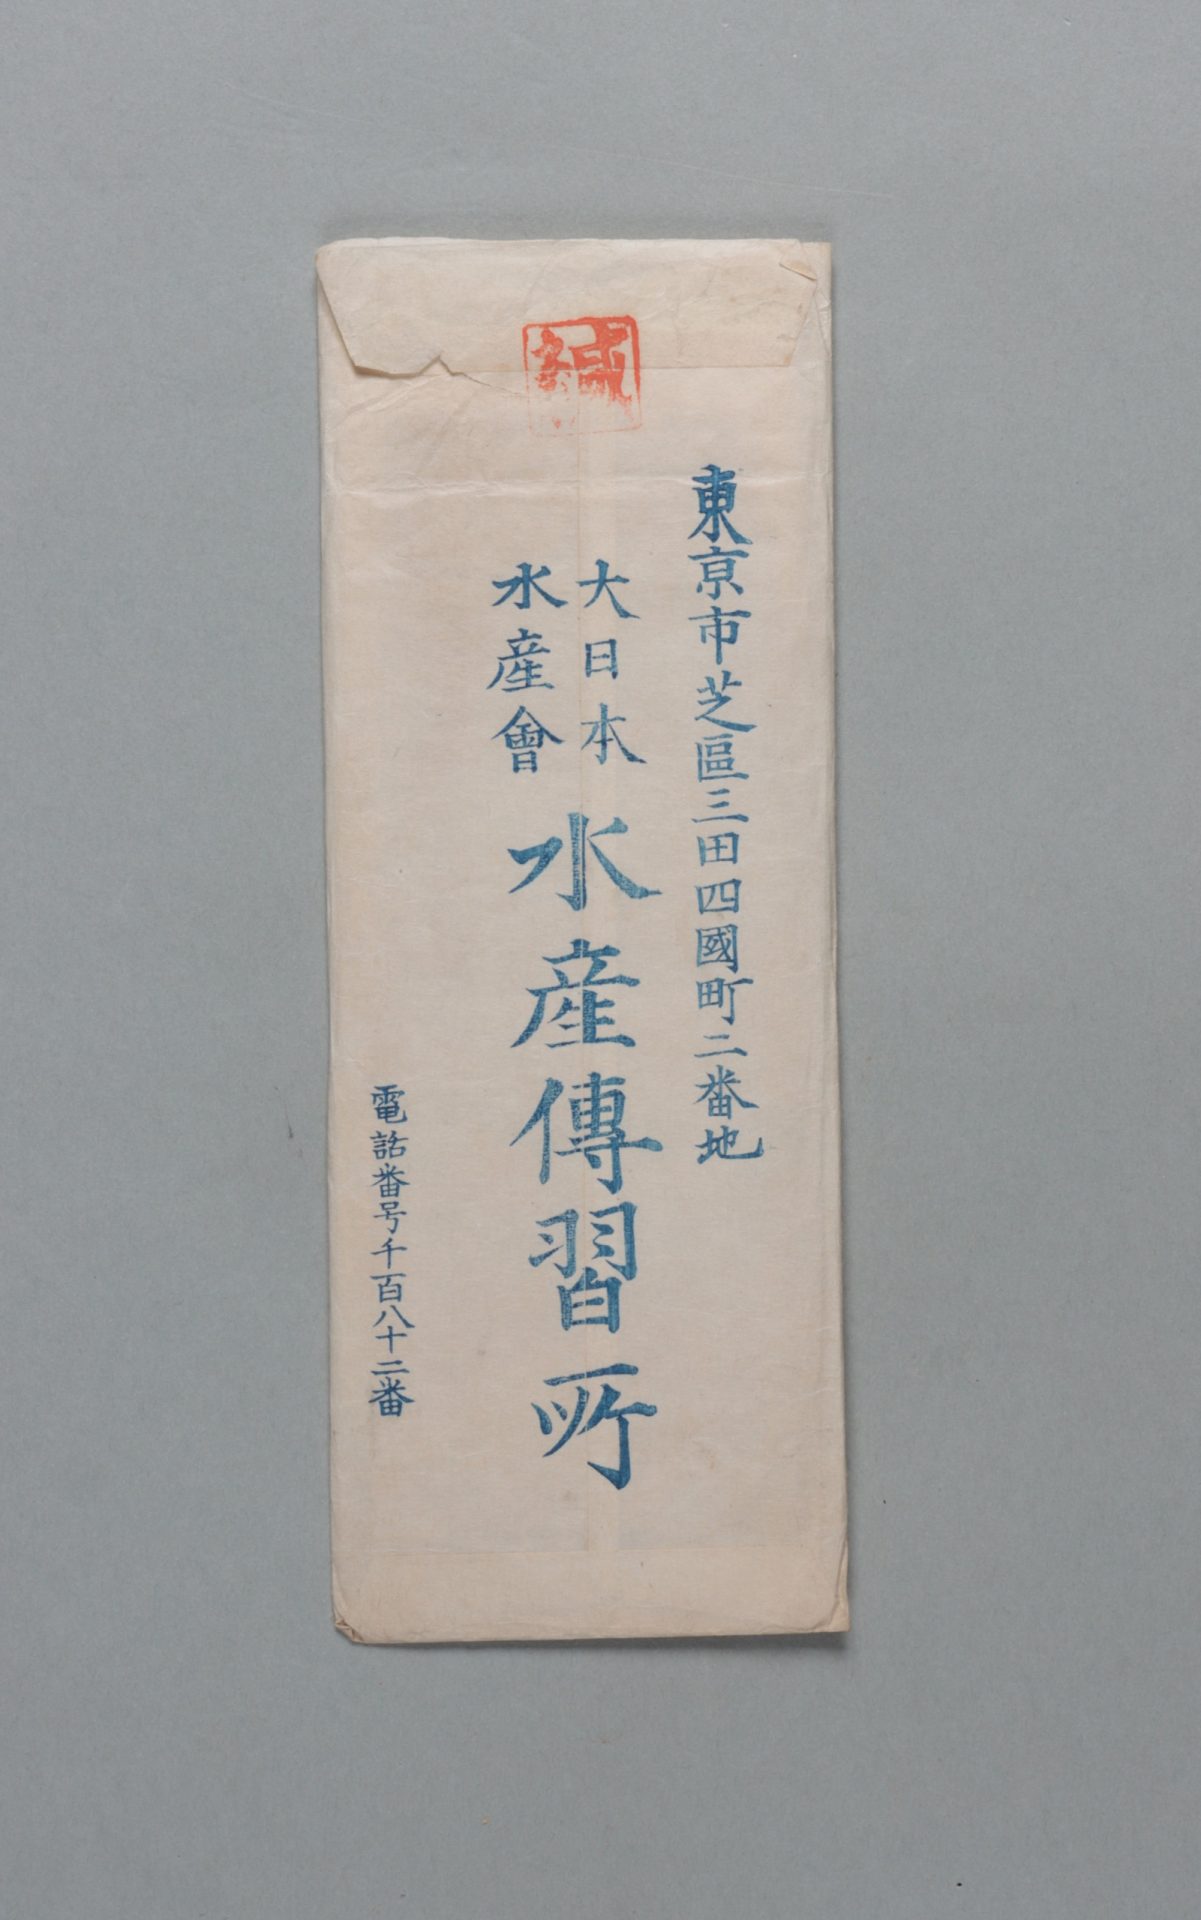 東亰市芝區三田四國町二番地
大日本
水產會
水產傳習所
電話番号千百八十二番